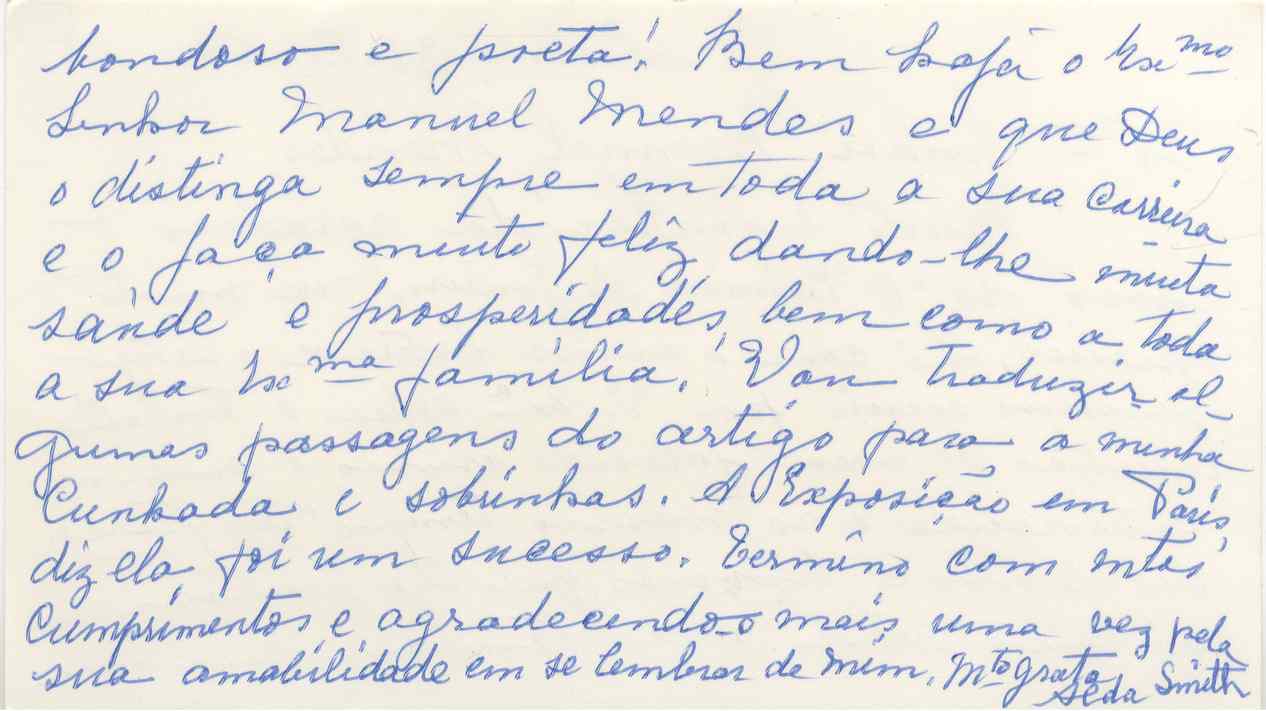 bondoso e poeta! Bem haja o Exmo
Senhor Manuel Mendes e que Deus
o distinga sempre em toda a sua carreira
e o faça muito feliz, dando-lhe muita
saúde e prosperidades, bem como a toda
a sua Exma família! Vou traduzir al-
gumas passagens do artigo para a minha
Cunhada e sobrinhas. A Exposição em Paris,
diz ela, foi um sucesso. Termino com mtos
cumprimentos e agradecendo-o mais uma vez pela
sua amabilidade em se lembrar de mim, Mto grata
Smith